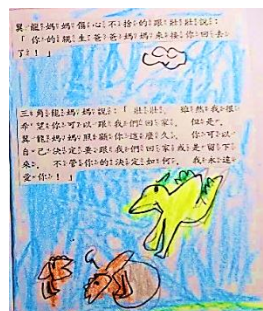 異龍媽媽傷心不捨的跟壯壯說：
「你的親生爸爸媽媽來接你回去
了！」
三角龍媽媽說：「壯壯， 雖然我很
希望你可以跟我們回家， 但是，
異龍媽媽照顧你這麼久， 你可以
自己決定要跟我們回家或是留下
來， 不管你的決定如何， 我永遠
愛你！」